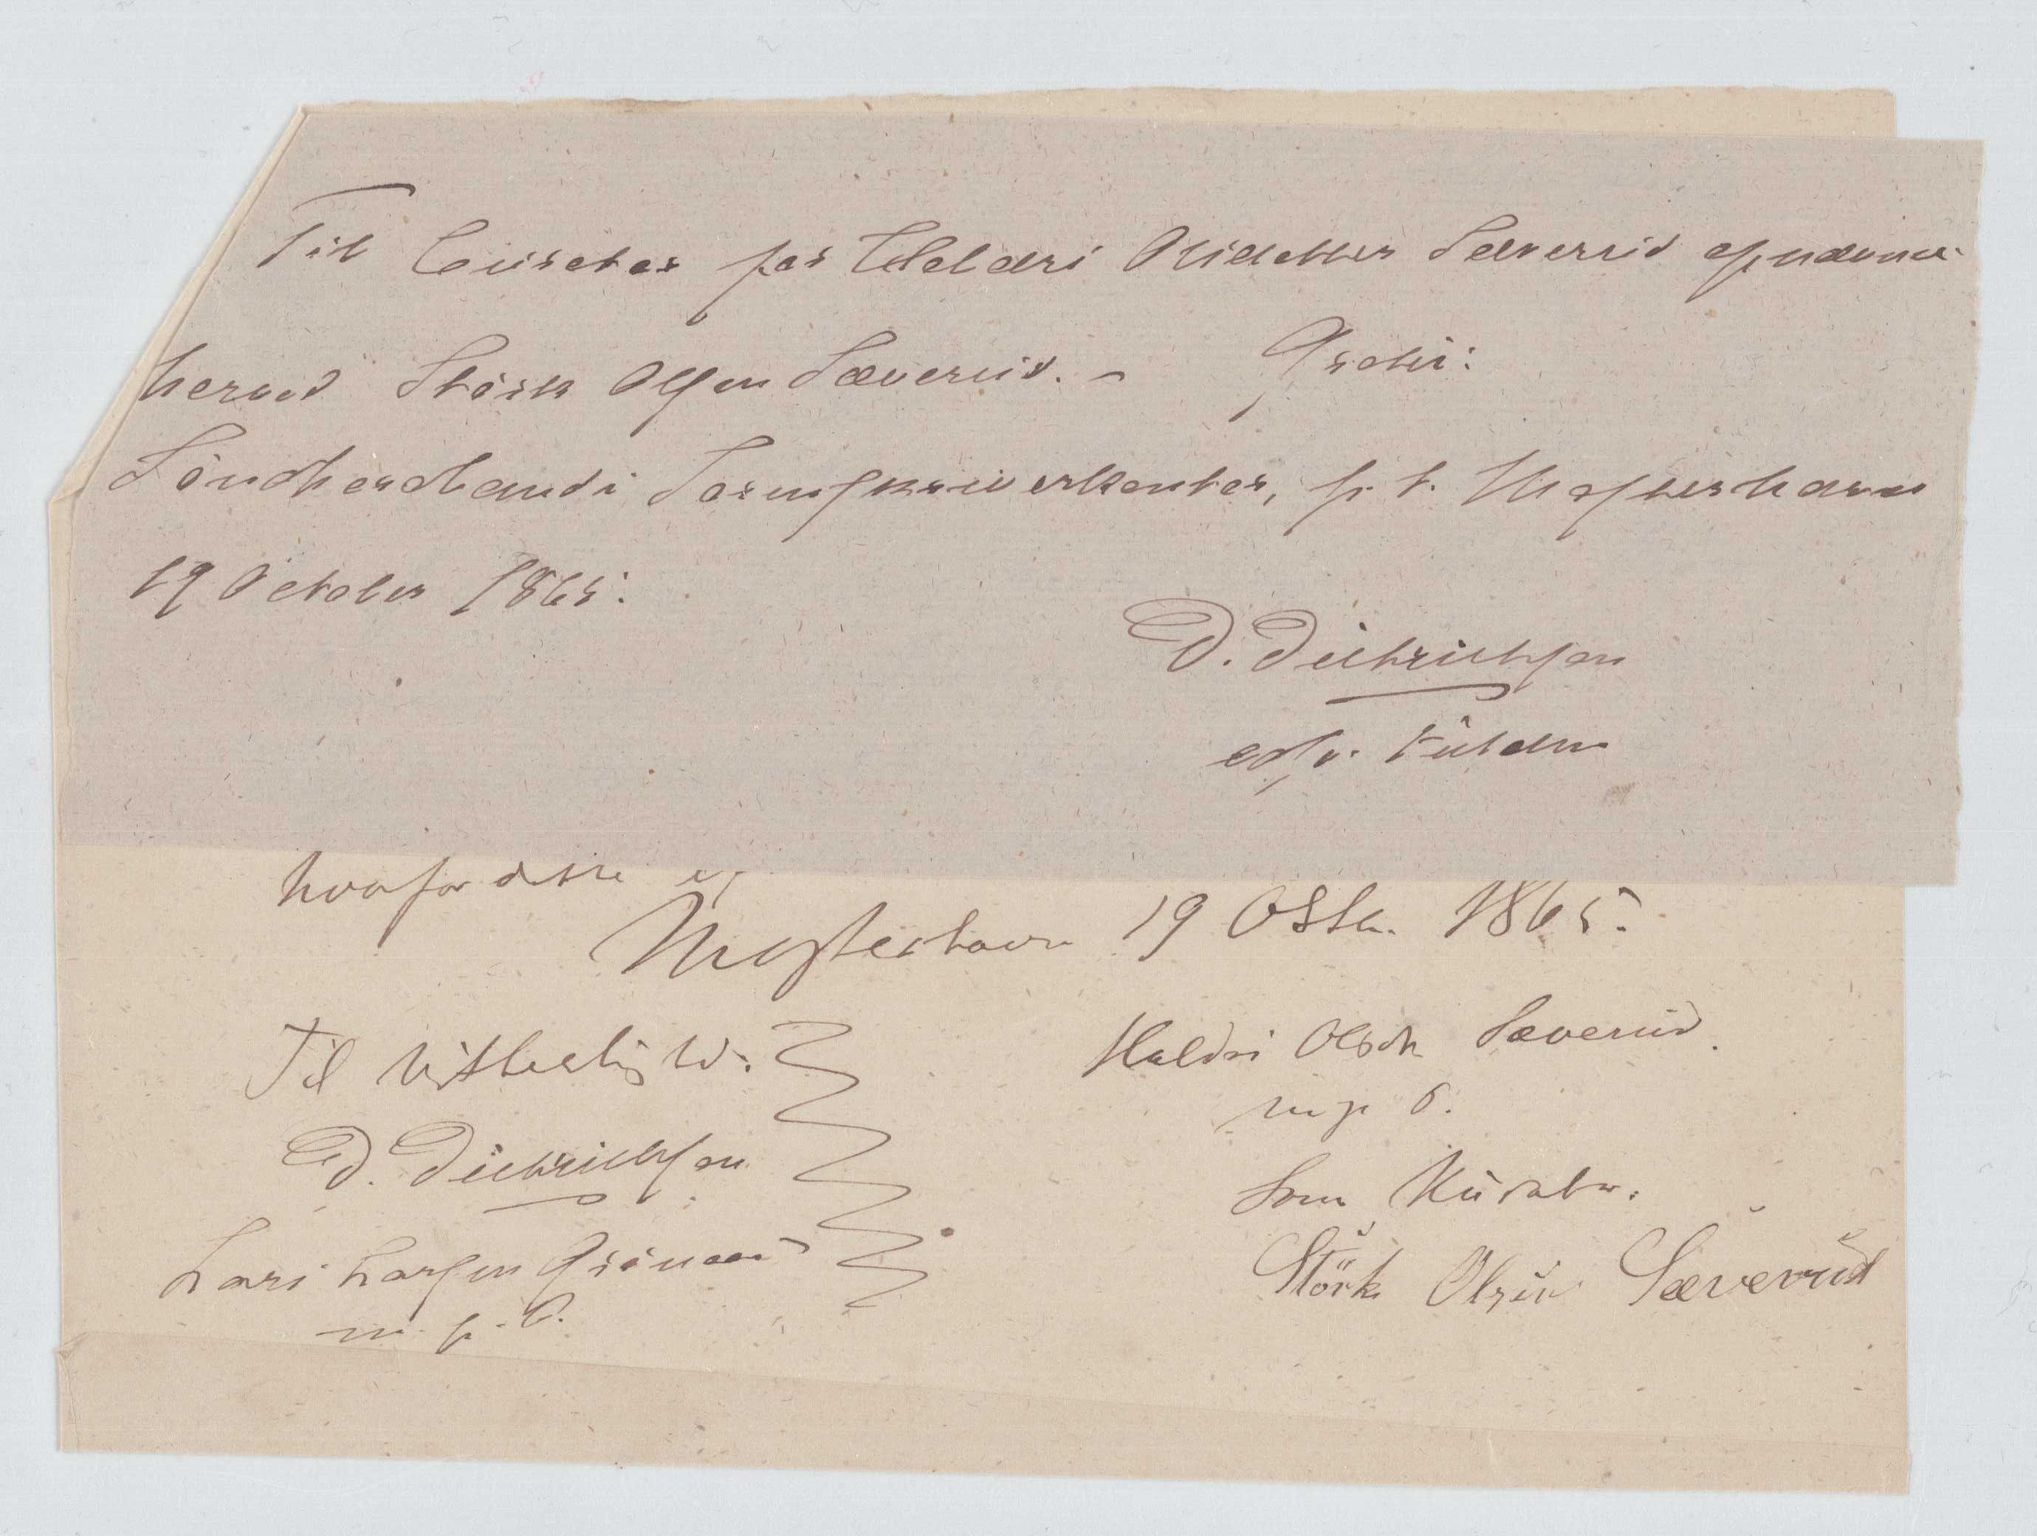 Til Curator for Haldri Olsdatter Sæverud opnævnes
herved Störk Olsen Sæverud. – Gratis:
Söndhordlands Sorenskriverkontor, p. t. Mosterhavn
19 October 1865.
D. Diethrichsen
edsv. Fuldm
hvorfor dette
Mosterhavn 19 Octbr. 1865.
Til Vitterlighed:
D. Diethrichsen
Lars Larsen Grönaas
m. p. P.
Haldri Olsdtr Sæverud.
m p P.
Som Kurator.
Störk Olsen Sæverud